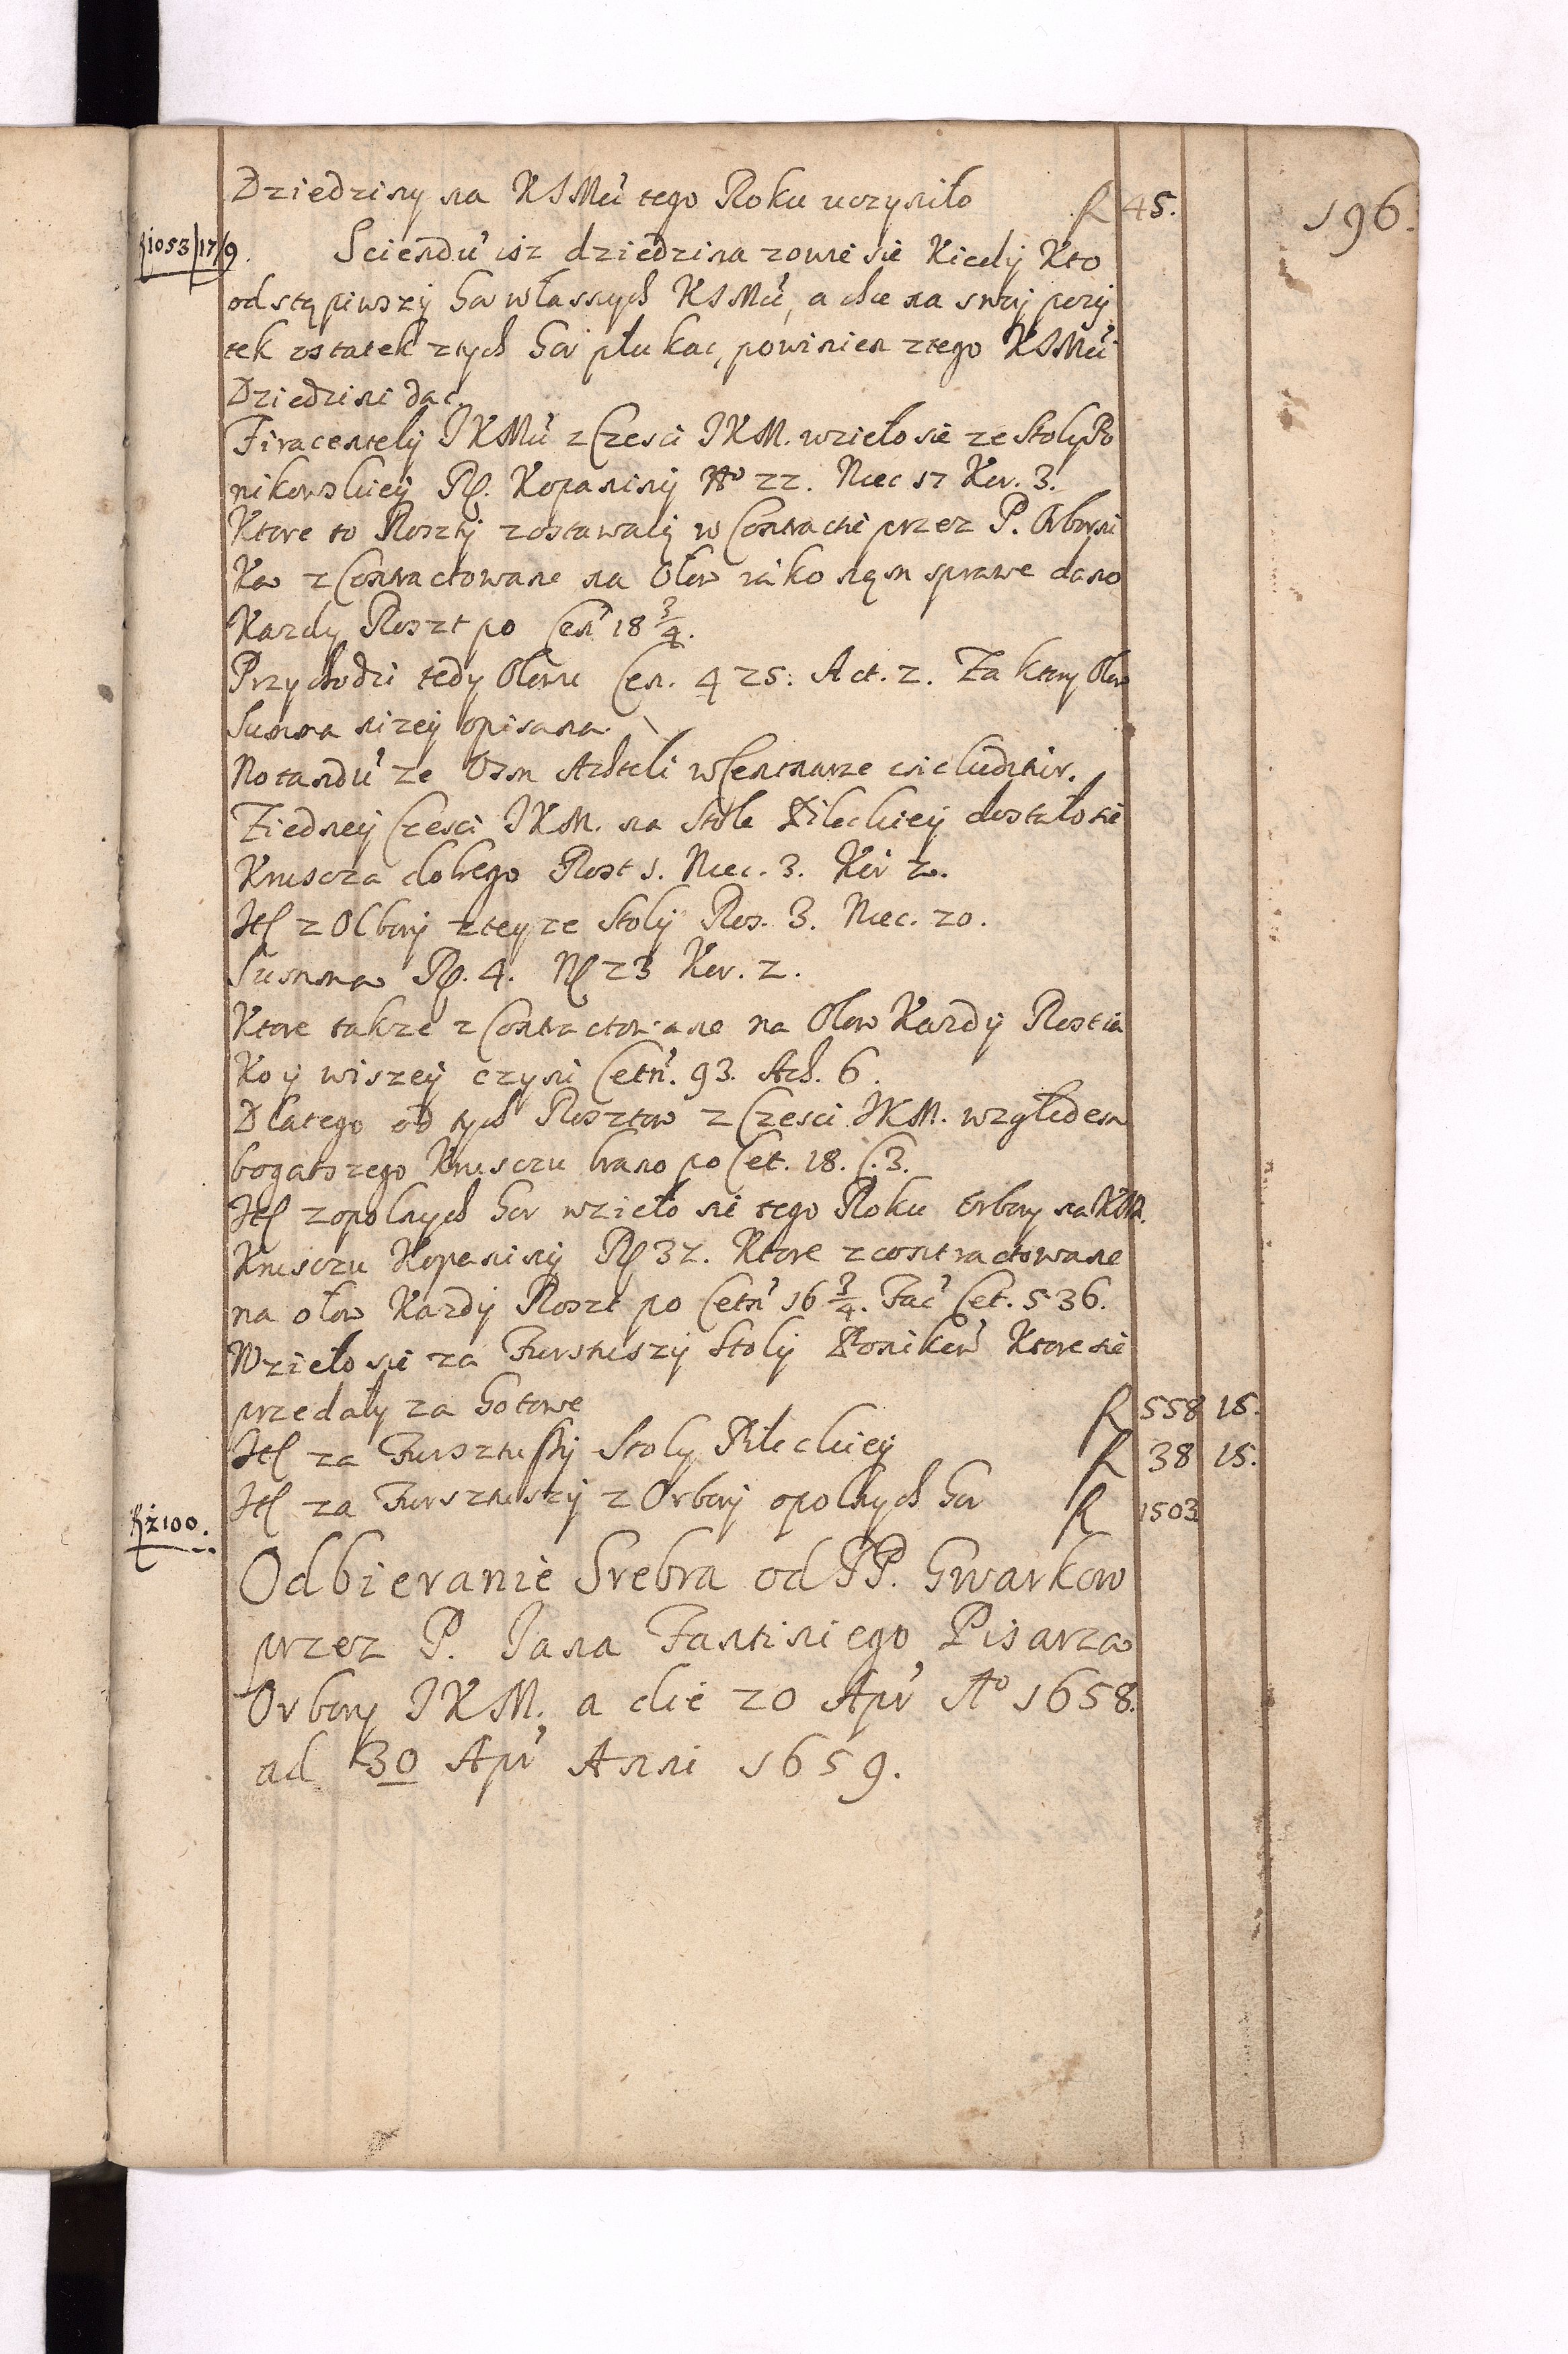 196.
Dziedziny na KJMci tego Roku uczyniło R 45.
R 1053/17/9.
Sciendu isz dziedzina zowie sie Kiedy Kto
odstąpiwszy Gor własnych KJMci, a chce na swoy pozy
tek ostatek z tych Gor płukac, powinien z tego KJMci
Dziedzini dac.
JKMci z Czesci JKM. wzieło sie ze Stoly Po
nikowskiey Rß. Kopaniny No 22. Niec 17 Ker. 3.
Ktore to Roszty zostawaly w Contractie przez P. Orborni
Ka z Contractowane na Ołow iako nąm sprawe dano
Kazdy Roszt po Cen 18 3/4.
Przychodzi tedy Olowu Cen. 425. Act. 2. Za ktory Olow
Summa nizey opisana
Notandu ze Osm Achteli w Centnarze includitur.
Z iedney Czesci JKM. na Stole Pileckiey dostało sie
Kruscza dobrego Rost 1. Niec. 3. Ker 2.
Itē z Olbory z teyze Stoly Ros. 3. Niec. 20.
Summa Rß. 4. Nß 23 Ker. 2.
Ktore takze z Contractowane na Olow Kazdy Rost ia
Ko y wiszey czyni Cetn. 93. Ach. 6.
Dlatego od tych Rosztow z Czesci JKM. wzgłedem
bogatszego Kruszczu brano po Cet. 18. C. 3.
Itē z opolnych Gor wzieło sie tego Roku Orbory na KJM.
Kruszczu Kopaniny Rß 32. Ktore z contractowane
na ołow Kazdy Roszt po Cetn 16 3/4. Fac Cet. 536.
Wzieło sie za Fursztuszy Stoly Ponikow Ktore sie
przedały za Gotowe R 558 15.
Itē za Fursztussy Stoly Pileckiey R 38 15.
Itē za Fursztuszy z Orbory opolnych Gor R 1503
R 2100.
Odbieranie Srebra od PP. Gwarkow
przez P. Jana Fantiniego Pisarza
Orbory JKM. a die 20 Apr Ao 1658.
ad 30 Apr Anni 1659.